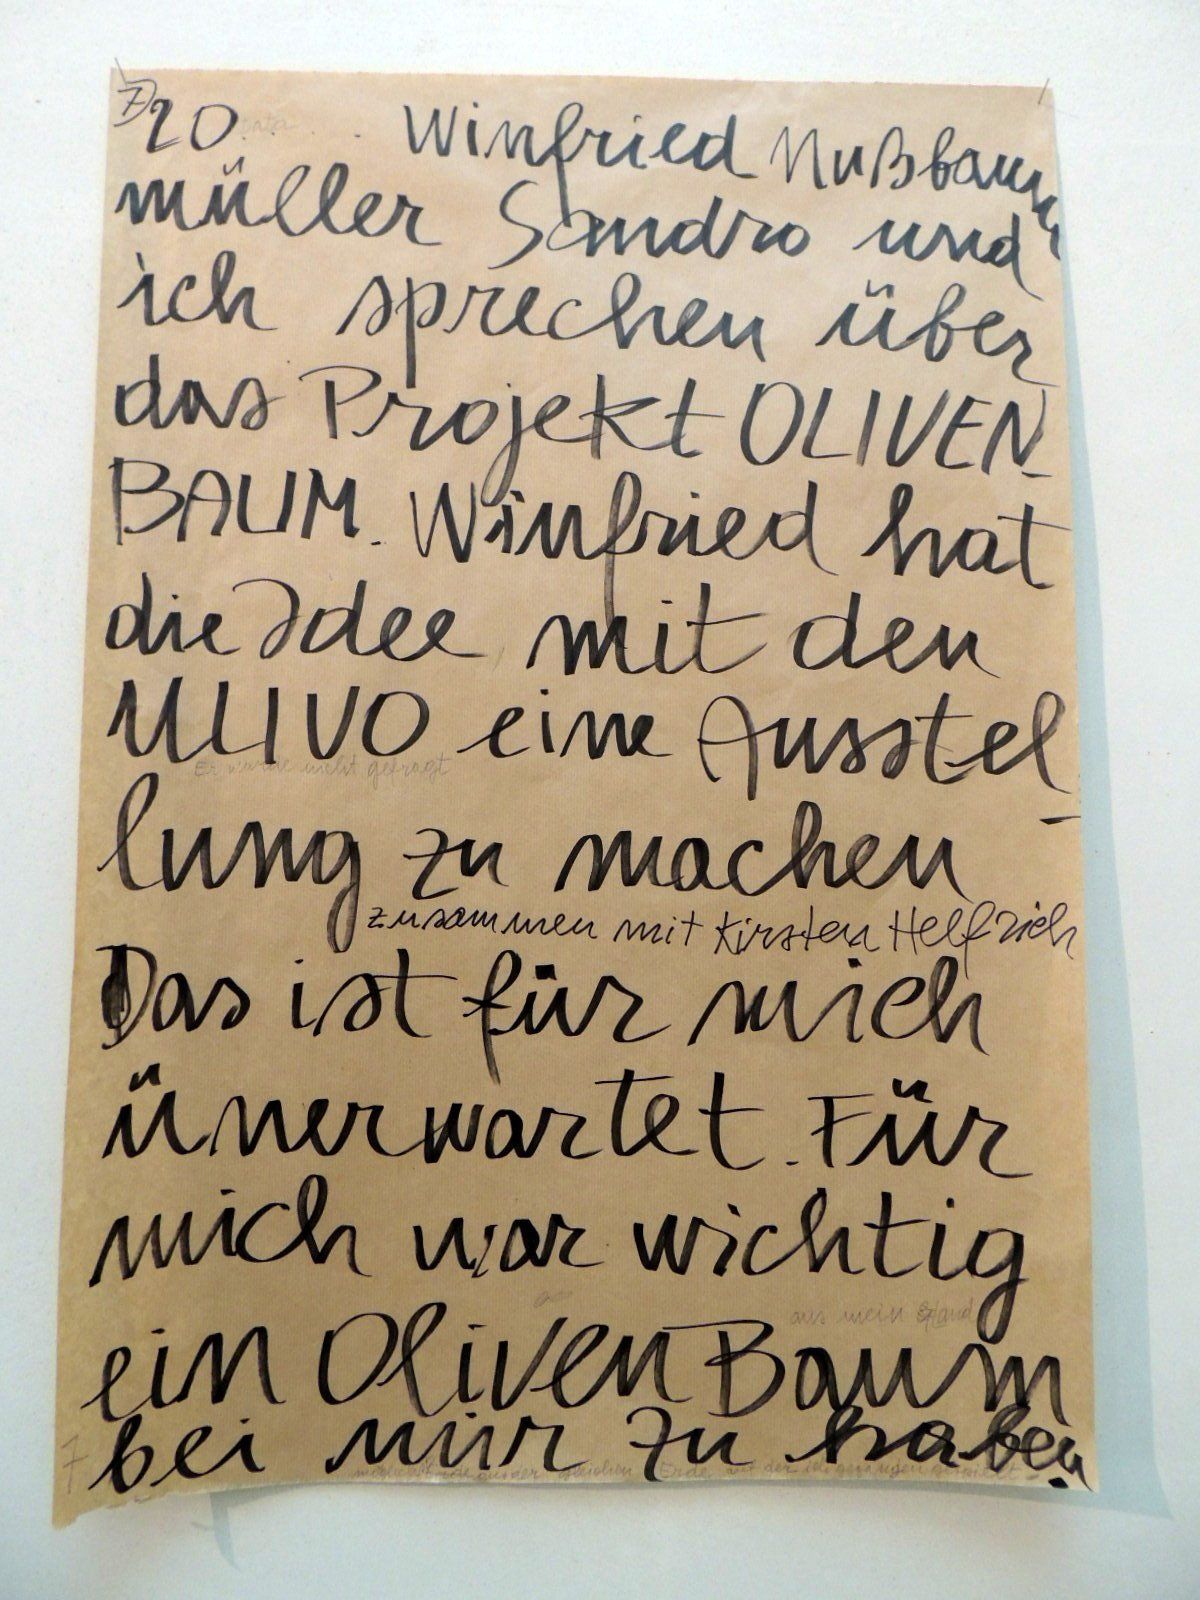 7) 20. . . . Winfried Nußbaum
müller Sandro und
ich sprechen über
das Projekt OLIVEN
BAUM. Winfried hat
die Idee mit den
ULIVO eine Ausstel
Er wurde nicht gefragt
lung zu machen
zusammen mit Kirsten Helfrich
Das ist für mich
ünerwartet. Für
mich war wichtig
aus mein Land
ein Oliven Baum
bei mir zu haben
7